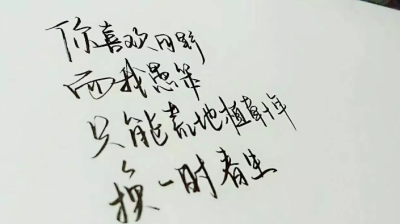 你喜欢田野
而我愚笨
只能荒地植草十年
换一时春生